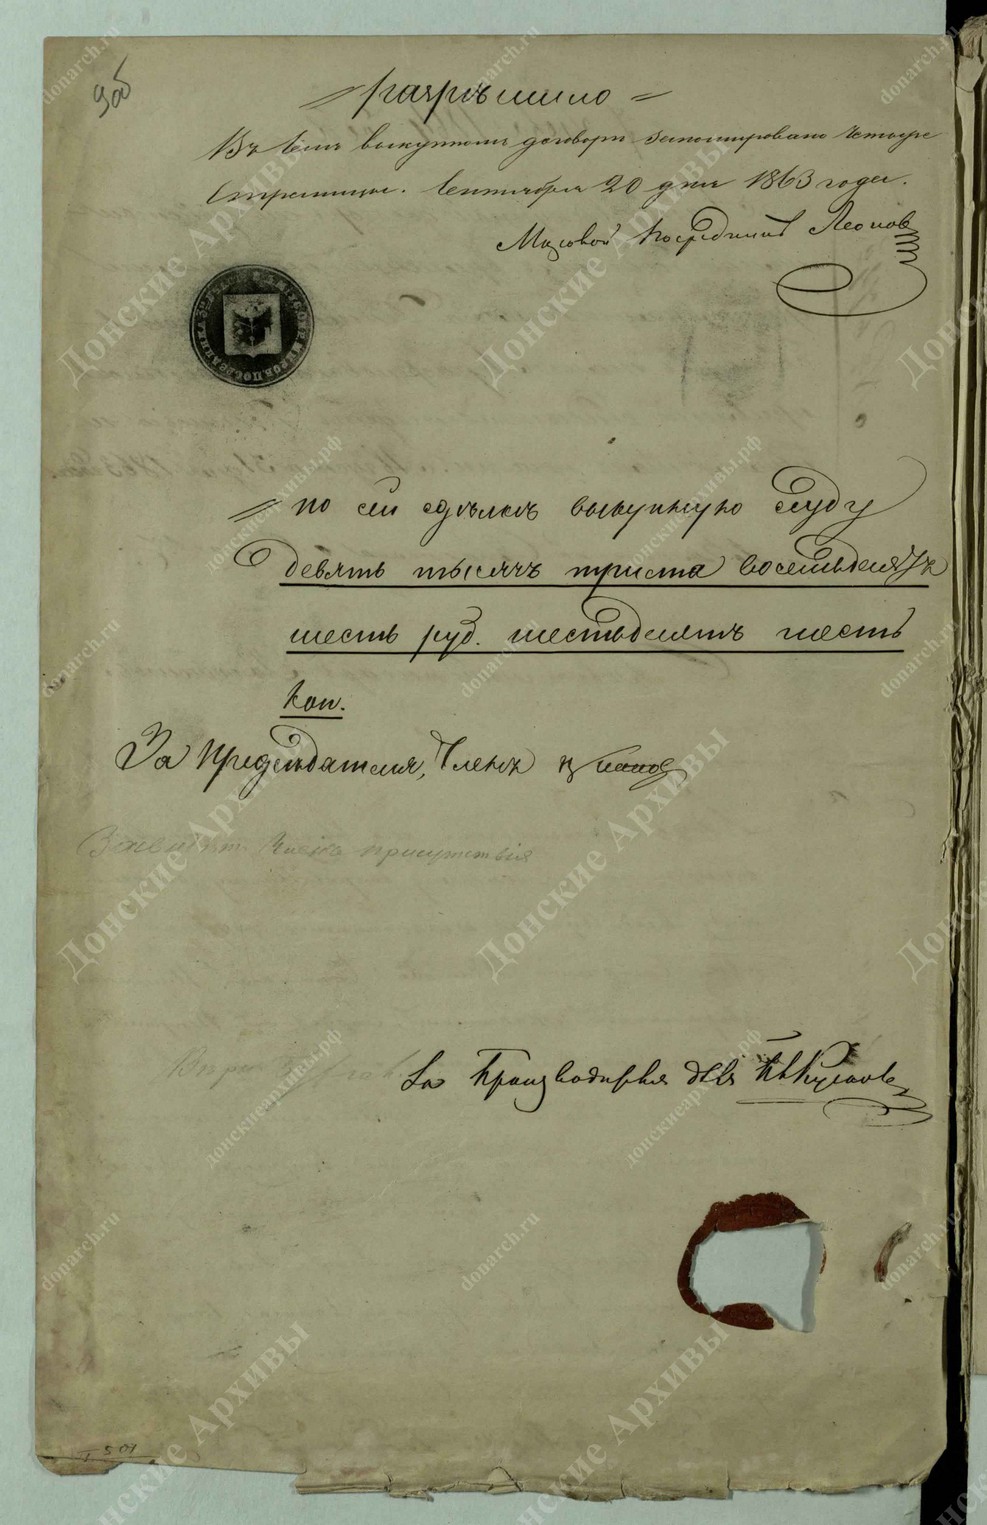 9об
= разрѣшило =
Въ семъ выкупномъ договорѣ запошнировано четыре
страницы. Сентября 20 дня 1863 года.
Мировой Посредникъ Леонов
= по сей сдѣлкѣ выкупную ссуду
девять тысячъ триста восемьдесятъ
шесть руб. шестьдесятъ шесть
коп.
За Предсѣдателя, Членъ
Члена присутствія
За Производителя дѣлъ
501
Донские Архивы
донскиеархивы.рф
donarch.ru